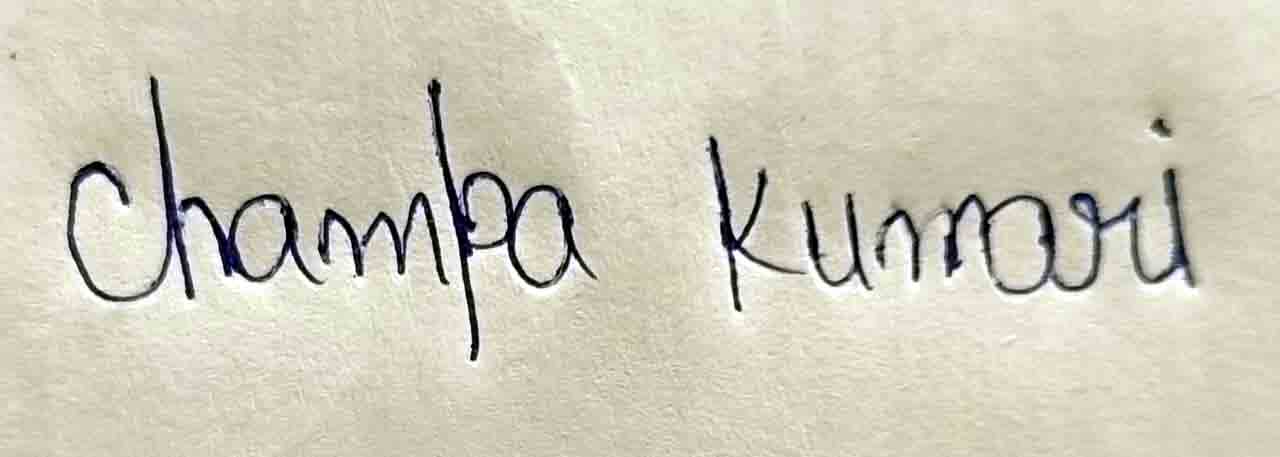 Champa Kumari